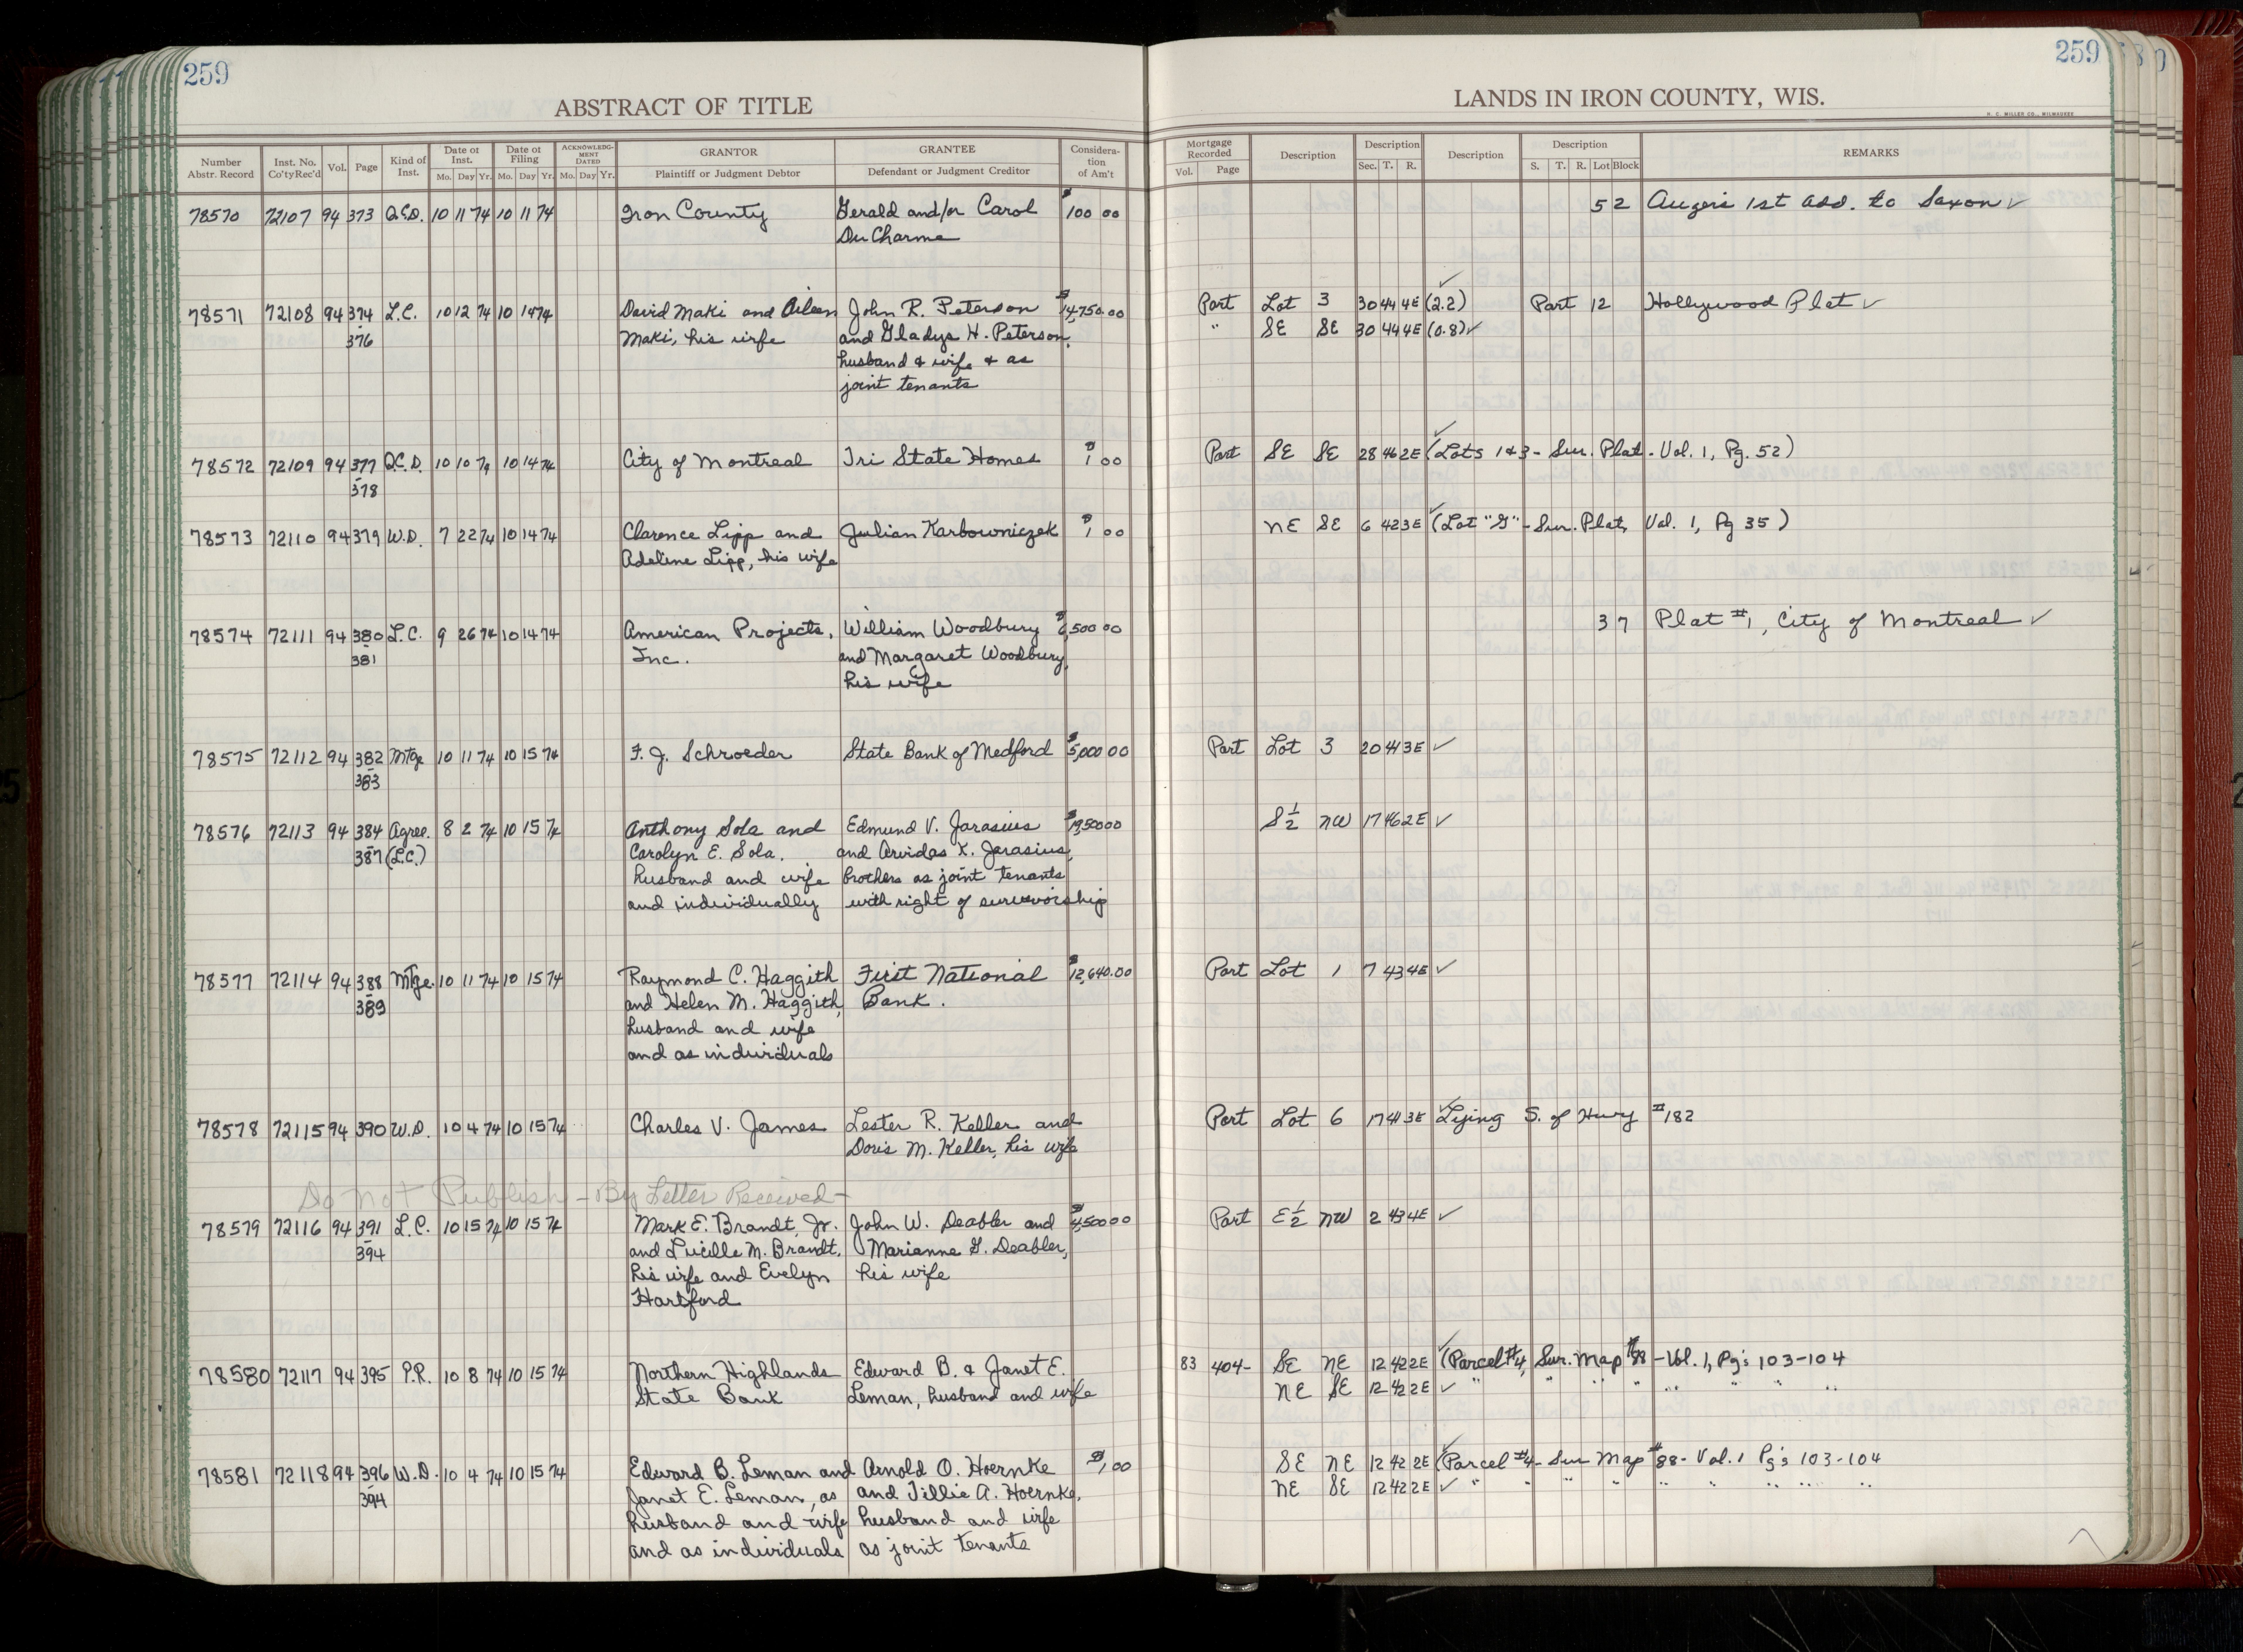 259
ABSTRACT OF TITLE
Number Abstr. Record | Inst. No. Co'ty Rec'd | Vol. | Page | Kind of Inst. | Date of Inst. Mo. Day Yr. | Date of Filing Mo. Day Yr. | ACKNOWLEDGMENT DATED Mo. Day Yr. | GRANTOR Plaintiff or Judgment Debtor | GRANTEE Defendant or Judgment Creditor | Consideration of Am't
78570 72107 94 373 Q.C.D. 10 11 74 10 11 74 Iron County Gerald and/or Carol $100 00
DuCharme
78571 72108 94 374 L.C. 10 12 74 10 14 74 David Maki and Aileen John R. Peterson $14,750.00
- 376 Maki, his wife and Gladys H. Peterson,
husband & wife & as
joint tenants
78572 72109 94 377 Q.C.D. 10 10 74 10 14 74 City of Montreal Tri State Homes $1 00
- 378
78573 72110 94 379 W.D. 7 22 74 10 14 74 Clarence Lipp and Julian Karbowniczek $1 00
Adeline Lipp, his wife
78574 72111 94 380 L.C. 9 26 74 10 14 74 American Projects, William Woodbury 500 00
- 381 Inc. and Margaret Woodbury,
his wife
78575 72112 94 382 Mtge 10 11 74 10 15 74 F. J. Schroeder State Bank of Medford $5,000 00
- 383
78576 72113 94 384 Agree. 8 2 74 10 15 74 Anthony Sola and Edmund V. Jarasius $19,500 00
- 387 (L.C.) Carolyn E. Sola. and Arvidas X. Jarasius,
husband and wife brothers as joint tenants
and individually with right of survivorship
78577 72114 94 388 Mtge. 10 11 74 10 15 74 Raymond C. Haggith First National $12,640.00
- 389 and Helen M. Haggith, Bank.
husband and wife
and as individuals
78578 72115 94 390 W.D. 10 4 74 10 15 74 Charles V. James Lester R. Keller and
Doris M. Keller, his wife
Do Not Publish - By Letter Received -
78579 72116 94 391 L.C. 10 15 74 10 15 74 Mark E. Brandt, Jr. John W. Deabler and $4,500 00
- 394 and Lucille M. Brandt, Marianne G. Deabler,
his wife and Evelyn his wife
Hartford
78580 72117 94 395 P.R. 10 8 74 10 15 74 Northern Highlands Edward B. & Janet E.
State Bank Leman, husband and wife
78581 72118 94 396 W.D. 10 4 74 10 15 74 Edward B. Leman and Arnold O. Hoernke $1,00
- 394 Janet E. Leman, as and Tillie A. Hoernke,
husband and wife husband and wife
and as individuals as joint tenants
259
LANDS IN IRON COUNTY, WIS.
H. C. MILLER CO., MILWAUKEE
Mortgage Recorded Vol. Page | Description | Description Sec. T. R. | Description | Description S. T. R. Lot Block | REMARKS
5 2 Auger's 1st Add. to Saxon ✓
Part Lot 3 30 44 4E (2.2) ✓ Part 12 Hollywood Plat ✓
" SE SE 30 44 4E (0.8) ✓
Part SE SE 28 46 2E (Lots 1 & 3 - Sur. Plat - Vol. 1, Pg. 52) ✓
NE SE 6 42 3E (Lot "G" - Sur. Plat, Vol. 1, Pg 35) ✓
37 Plat #1, City of Montreal ✓
Part Lot 3 20 41 3E ✓
S½ NW 17 46 2E ✓
Part Lot 1 7 43 4E ✓
Part Lot 6 17 41 3E Lying S. of Hwy #182 ✓
Part E½ NW 2 43 4E ✓
83 404- SE NE 12 42 2E (Parcel #4, Sur. Map #88 - Vol. 1, Pg's 103-104 ✓
NE SE 12 42 2E ✓ " " " " " " "
SE NE 12 42 2E (Parcel #4 - Sur Map #88 - Vol. 1 Pg's 103-104 ✓
NE SE 12 42 2E ✓ " " " " " " " "